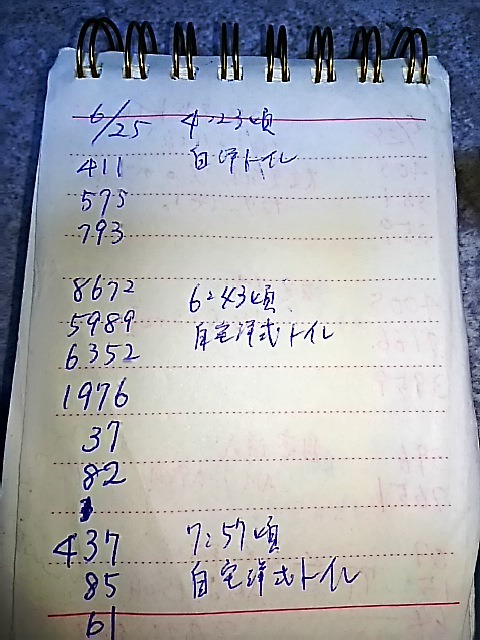 6/25 4:23頃
411 自洋トイレ
595
793
8672 6:43頃
5989 自宅洋式トイレ
6352
1976
37
82
437 7:57頃
85 自宅洋式トイレ
61